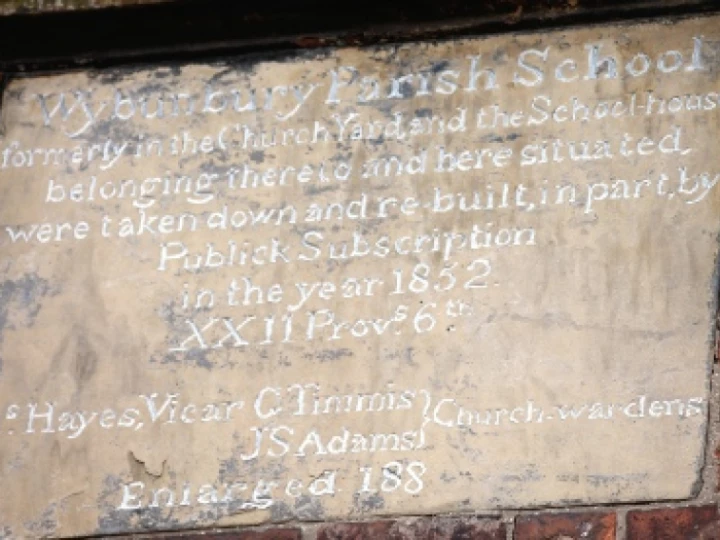 Wybunbury Parish School
formerly in the Church Yard, and the School-hous
belonging thereto and here situated,
were taken down and re-built, in part, by
Publick Subscription
in the year 1852.
XXII Provs. 6th
s Hayes, Vicar C Timmis } Church-wardens
J S Adams
Enlarged 188